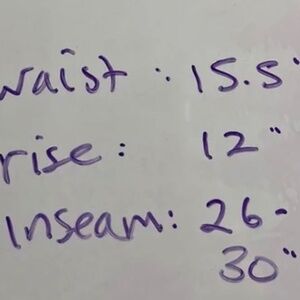 waist : 15.5"
rise : 12"
Inseam : 26-
30"